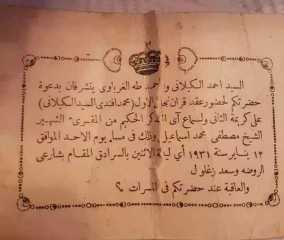 السيد احمد الكيلاني و احمد طه الغرباوى يتشرفان بدعوة
حضرتكم لحضور عقد قران نجل الاول (محمد افندى السيد الكيلانى)
على كريمة الثانى ولسماع آى الذكر الحكيم من المقرىء الشهير
الشيخ مصطفى محمد اسماعيل وذلك فى مساء يوم الاحد الموافق
١٢ يناير سنة ١٩٣١ أى ليلة الاثنين بالسرادق المقام بشارعى
الروضه وسعد زغلول
والعاقبة عند حضرتكم فى المسرات